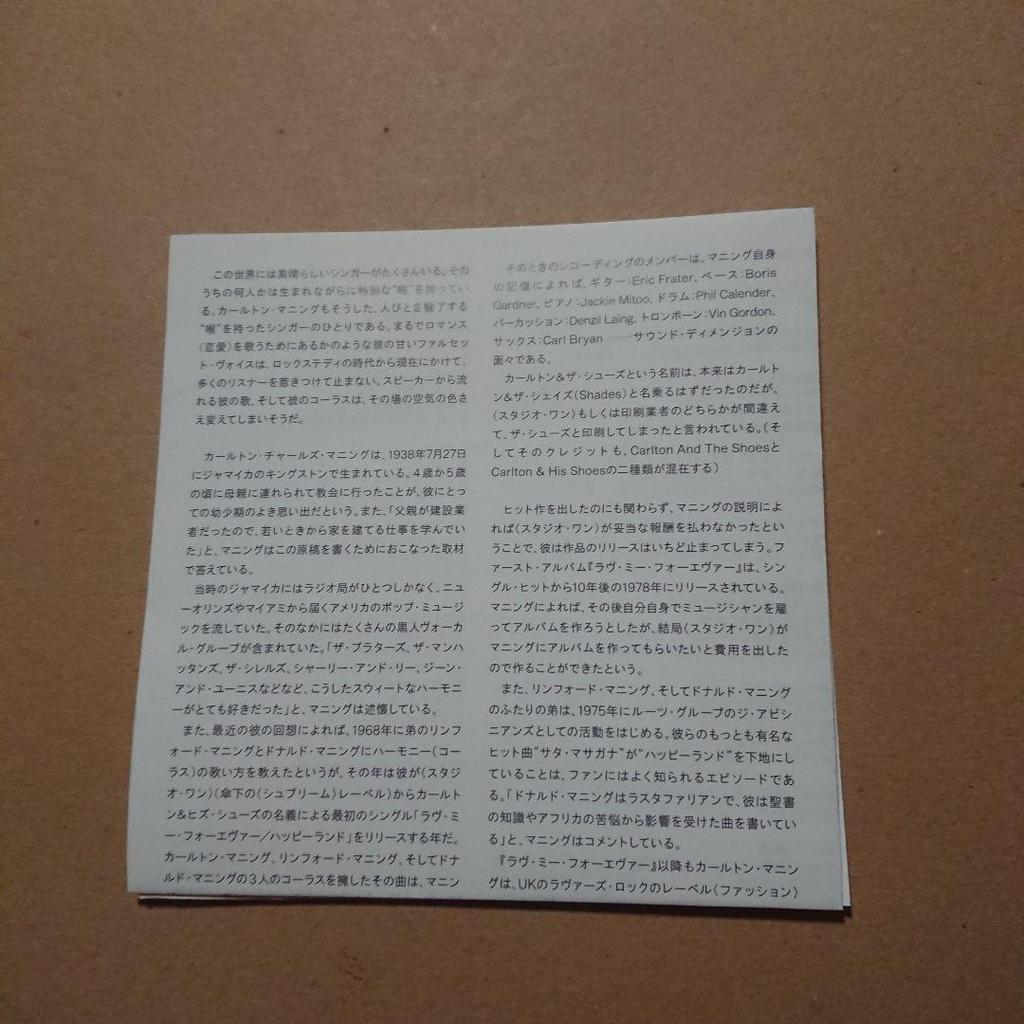 この世界には素晴らしいシンガーがたくさんいる。その
うちの何人かは生まれながらに特別な“喉”を持ってい
る。カールトン・マニングもそうした、人びとを魅了する
“喉”を持ったシンガーのひとりである。まるでロマンス
(恋愛)を歌うためにあるかのような彼の甘いファルセッ
ト・ヴォイスは、ロックステディの時代から現在にかけて、
多くのリスナーを惹きつけて止まない。スピーカーから流
れる彼の歌、そして彼のコーラスは、その場の空気の色さ
え変えてしまいそうだ。
カールトン・チャールズ・マニングは、1938年7月27日
にジャマイカのキングストンで生まれている。4歳か5歳
の頃に母親に連れられて教会に行ったことが、彼にとっ
ての幼少期のよき思い出だという。また、「父親が建設業
者だったので、若いときから家を建てる仕事を学んでい
た」と、マニングはこの原稿を書くためにおこなった取材
で答えている。
当時のジャマイカにはラジオ局がひとつしかなく、ニュ
ーオリンズやマイアミから届くアメリカのポップ・ミュージ
ックを流していた。そのなかにはたくさんの黒人ヴォーカ
ル・グループが含まれていた。「ザ・プラターズ、ザ・マンハ
ッタンズ、ザ・シレルズ、シャーリー・アンド・リー、ジーン・
アンド・ユーニスなどなど、こうしたスウィートなハーモニ
ーがとても好きだった」と、マニングは述懐している。
また、最近の彼の回想によれば、1968年に弟のリンフ
ォード・マニングとドナルド・マニングにハーモニー(コー
ラス)の歌い方を教えたというが、その年は彼が〈スタジ
オ・ワン〉(傘下の〈シュプリーム〉レーベル)からカールト
ン&ヒズ・シューズの名義による最初のシングル「ラヴ・ミ
ー・フォーエヴァー/ハッピーランド」をリリースする年だ。
カールトン・マニング、リンフォード・マニング、そしてドナ
ルド・マニングの3人のコーラスを擁したその曲は、マニン
そのときのレコーディングのメンバーは、マニング自身
の記憶によれば、ギター:Eric Frater、ベース:Boris
Gardner、ピアノ:Jackie Mitoo、ドラム:Phil Calender、
パーカッション:Denzil Laing、トロンボーン:Vin Gordon、
サックス:Carl Bryan ……サウンド・ディメンジョンの
面々である。
カールトン&ザ・シューズという名前は、本来はカールト
ン&ザ・シェイズ(Shades)と名乗るはずだったのだが、
〈スタジオ・ワン〉もしくは印刷業者のどちらかが間違え
て、ザ・シューズと印刷してしまったと言われている。(そ
してそのクレジットも、Carlton And The Shoesと
Carlton & His Shoesの二種類が混在する)
ヒット作を出したのにも関わらず、マニングの説明によ
れば〈スタジオ・ワン〉が妥当な報酬を払わなかったとい
うことで、彼は作品のリリースはいちど止まってしまう。フ
ァースト・アルバム『ラヴ・ミー・フォーエヴァー』は、シン
グル・ヒットから10年後の1978年にリリースされている。
マニングによれば、その後自分自身でミュージシャンを雇
ってアルバムを作ろうとしたが、結局〈スタジオ・ワン〉が
マニングにアルバムを作ってもらいたいと費用を出した
ので作ることができたという。
また、リンフォード・マニング、そしてドナルド・マニング
のふたりの弟は、1975年にルーツ・グループのジ・アビシ
ニアンズとしての活動をはじめる。彼らのもっとも有名な
ヒット曲“サタ・マサガナ”が“ハッピーランド”を下地にし
ていることは、ファンにはよく知られるエピソードであ
る。「ドナルド・マニングはラスタファリアンで、彼は聖書
の知識やアフリカの苦悩から影響を受けた曲を書いてい
る」と、マニングはコメントしている。
『ラヴ・ミー・フォーエヴァー』以降もカールトン・マニン
グは、UKのラヴァーズ・ロックのレーベル〈ファッション〉